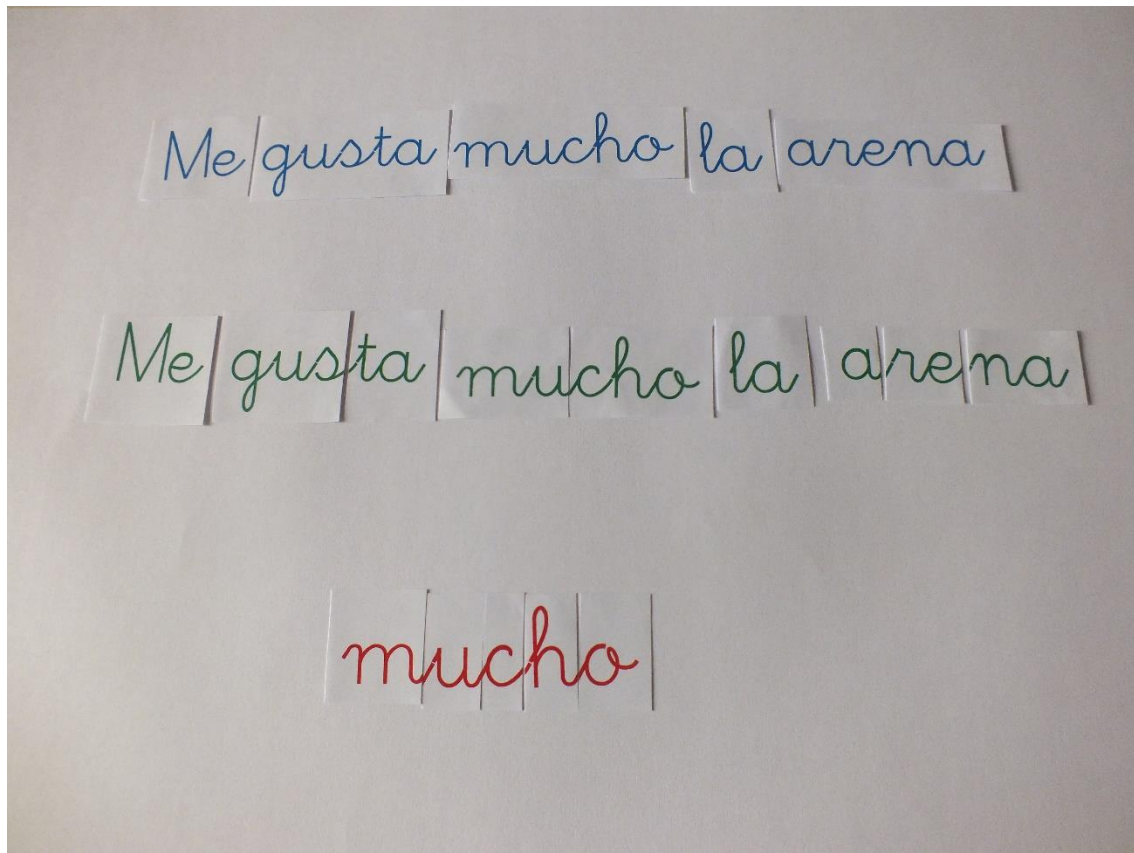 Me gusta mucho la arena
Me gusta mucho la arena
mucho